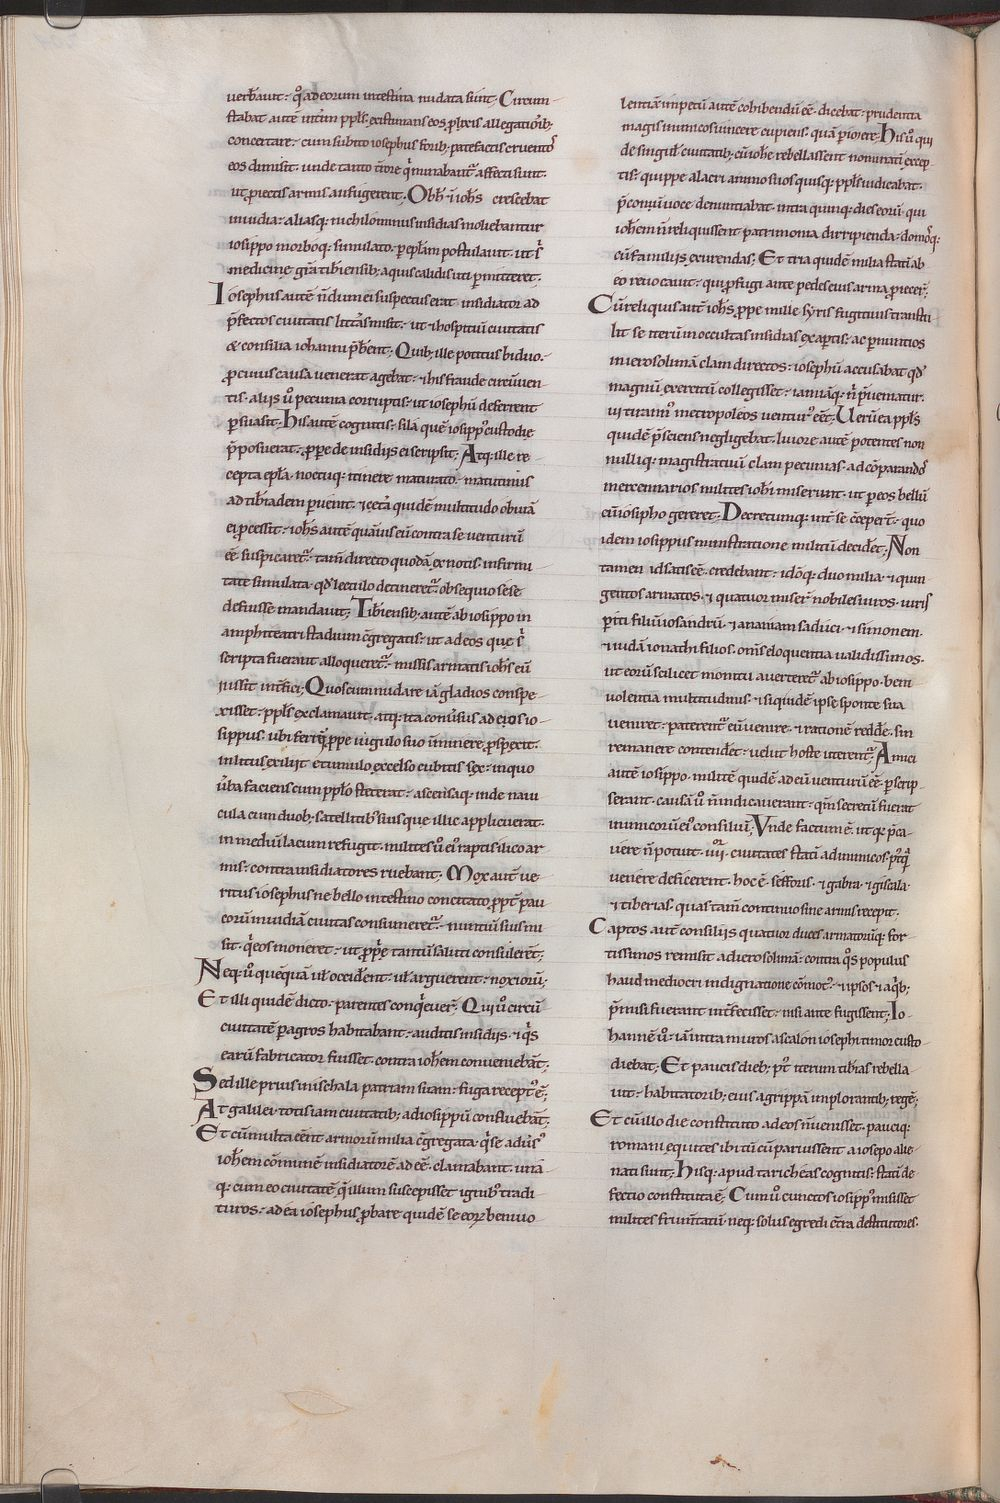 uerberauit· q̊ adeorum intestina nudata sunt· Circum
stabat autē intim ppls· existimans eos ꝓlixis allegationib;
concertare· cum subito iosephus forib; patefactis cruentos
eos dimisit· unde tanto tīrore q̇ minabantur affecti sunt·
ut ꝓiectis armis aufugerent; Ob hēc iohīs crescebat
inuidia· aliasq; nichilominus insidias moliebantur
iosippo morboq; simulato· ꝑ eplam postulauit· ut sī
medicinę grā tibriensib; aquis calidis uti ꝑmitteret;
Iosephus autē nondum ei suspectus erat insidiator ad
p̄fectos ciuitatis litteras misit· ut ⁊ hospitiū ciuitatis
& consilia iohanni p̄berent; Quib; ille potitus biduo·
ꝓ cuius causa uenerat agebat· ⁊ his fraude circūuen
tis· aliis uo pecunia corruptis· ut iosephū deferrent
ꝑsuasit· His autē cognitis· sila quē iosippus custodię
p̄posuerat· ꝓpere de insidiis ei scripsit; Atq; ille re
cepta epla· noctuq; itinere maturato· matutinus
ad tibriadem ꝑuenit· ⁊ cetā quidē multitudo obuiā
ei ꝓcessit· iohīs autē quāuis eū contra se uenturū
eē suspicaret᷑· tam̄ directo quodā ex notis· infirmi
tate simulata· qđ lectulo detineret᷑ obsequio sese
defuisse mandauit; Tibriensib; autē ab iosippo in
amphiteatri stadium cōgregatis· ut ad eos quę sī
scripta fuerant alloqueret᷑· missis armatis iohīs eū
iussit interfici; Quos cum nudare iā gladios conspe
xisset· ppls exclamauit· atq; ita conuersus ad eos io
sippus· ubi ferrū ꝓpe iugulo suo imminere ꝓspexit·
in litus exiliit e tumulo excelso cubitis sex· in quo
uerba faciens cum pplo steterat· ascensaq; inde naui
cula cum duob; satellitib; suis que illic applicuerat·
in mediū lacum refugit· milites uo eius raptis ilico ar
mis· contra insidiatores ruebant· Mox aut̄ ue
ritus iosephus ne bello intestino concitato ꝓpt̄ pau
corū inuidiā ciuitas consumeret᷑· nuntiū suis mi
sit· q̇ eos moneret· ut ꝓprię tantū saluti consulerēt;
Neq; uo quēquā uel occiderent· uel arguerent noxiorū;
Et illi quidē dicto· parentes conquieuer̄; Qui uo circū
ciuitatē ꝑ agros habitabant· auditis insidiis· ⁊ q̇s
earū fabricator fuisset· contra iohem conueniebāt;
Sed ille prius in ischala patriam suam· fuga receptus ē;
At galilei· totis iam ciuitatib; ad iosippū confluebāt;
Et cū multa eēnt armorū milia cōgregata· q̇ se aduersus
iohem cōmunē insidiatorē adeē· clamabant· unā
q; cum eo ciuitatē q̄ illum suscepisset ignibus tradi
turos· ad ea iosephus ꝓbare quidē se eorꝫ beniuo
lentiā· impetū autē cohibendū eē· dicebat· prudentia
magis inimicos uincere cupiens· quā ꝑimere; His uo qui
de singulis ciuitatib; cū iohē rebellassent nominatī excep
tis· quippe alacri animo suos quisq; ppls indicabat·
p̄conū uoce denuntiabat· intra quinq; dies eorū· qui
iohem n̄ reliquissent patrimonia dirripienda· domosq;
cū familiis exurendas; Et tria quidē milia statī ab
eo reuocauit· qui ꝓfugi ante pedes eius arma ꝓiecer̄;
Cū reliquis aut̄ iohīs ꝓpe mille syris fugitiuis transtu
lit se iterū in occultas insidias ex aꝑtis· ac ꝑ nuntios
in ierosolimā clam directos· iosephū accusabat qđ
magnū exercitū collegisset· iamiāq; nī p̄ueniatur·
ut tirannus metropoleos uenturus eēt; Uerū ea ppls
quidē p̄sciens negligebat· liuore autē potentes non
nulliq; magistratuū clam pecunias· ad cōparandos
mercennarios milites iohi miserunt· ut ꝑ eos bellū
cū iosipho gereret; Decretumq; int̄ se ceꝑt· quo
idem iosippus ministratione militū decideret; Non
tamen id satis eē· credebant· idoq; duo milia· ⁊ quin
gentos armatos· ⁊ quatuor miser̄ nobiles uiros· iuris
ꝑiti filiū iosandrū· ⁊ ananiam saduci· ⁊ simonem·
⁊ iudā ionathi filios· oms eloquentia ualidissimos·
ut eorū scilicet monitu auerteret᷑ ab iosippo· beni
uolentia multitudinis· ⁊ siquidē ipse sponte sua
ueniret· paterent᷑ eū uenire· ⁊ rationē reddere· sin
remanere contenderet· uelut hoste uterent᷑; Amici
autē iosippo· militē quidē ad eū uenturū eē· ꝑscrip
serant· causā uo n̄ indicauerant· qm̄ secretū fuerat
inimicorū eius consiliū; Vnde factum ē· ut q̇ p̄ca
uere n̄ potuit· iiiior· ciuitates statī ad inimicos p̄tq̄
uenere deficerent· hoc ē· sefforis· ⁊ gabra· ⁊ giscala·
⁊ tiberias· quas tam̄ continuo sine armis recepit·
Captos aut̄ consiliis quatuor duces armatorūq; for
tissimos remisit· ad ierosolimā· contra q̊s populus
haud mediocri indignatione cōmotus· ⁊ ipsos ⁊ a q̇b;
p̄missi fuerant int̄fecisset· nisi ante fugissent; Io
hannē uo· iā intra muros ascalon iosephi timor custo
diebat; Et paucis dieb; p̄t iterum tibrias rebella
uit· habitatorib; eius agrippā implorantib; regē;
Et cū illo die constituto ad eos n̄ uenisset· pauciq;
romani equites ibi tū cū paruissent· a iosepo alie
nati sunt; Hisq; apud taricheas cognitis· statī de
fectio constituta ē; Cum uo cunctos iosippus misisset
milites frumtatū· neq; solus egredi cōtra destitutores·